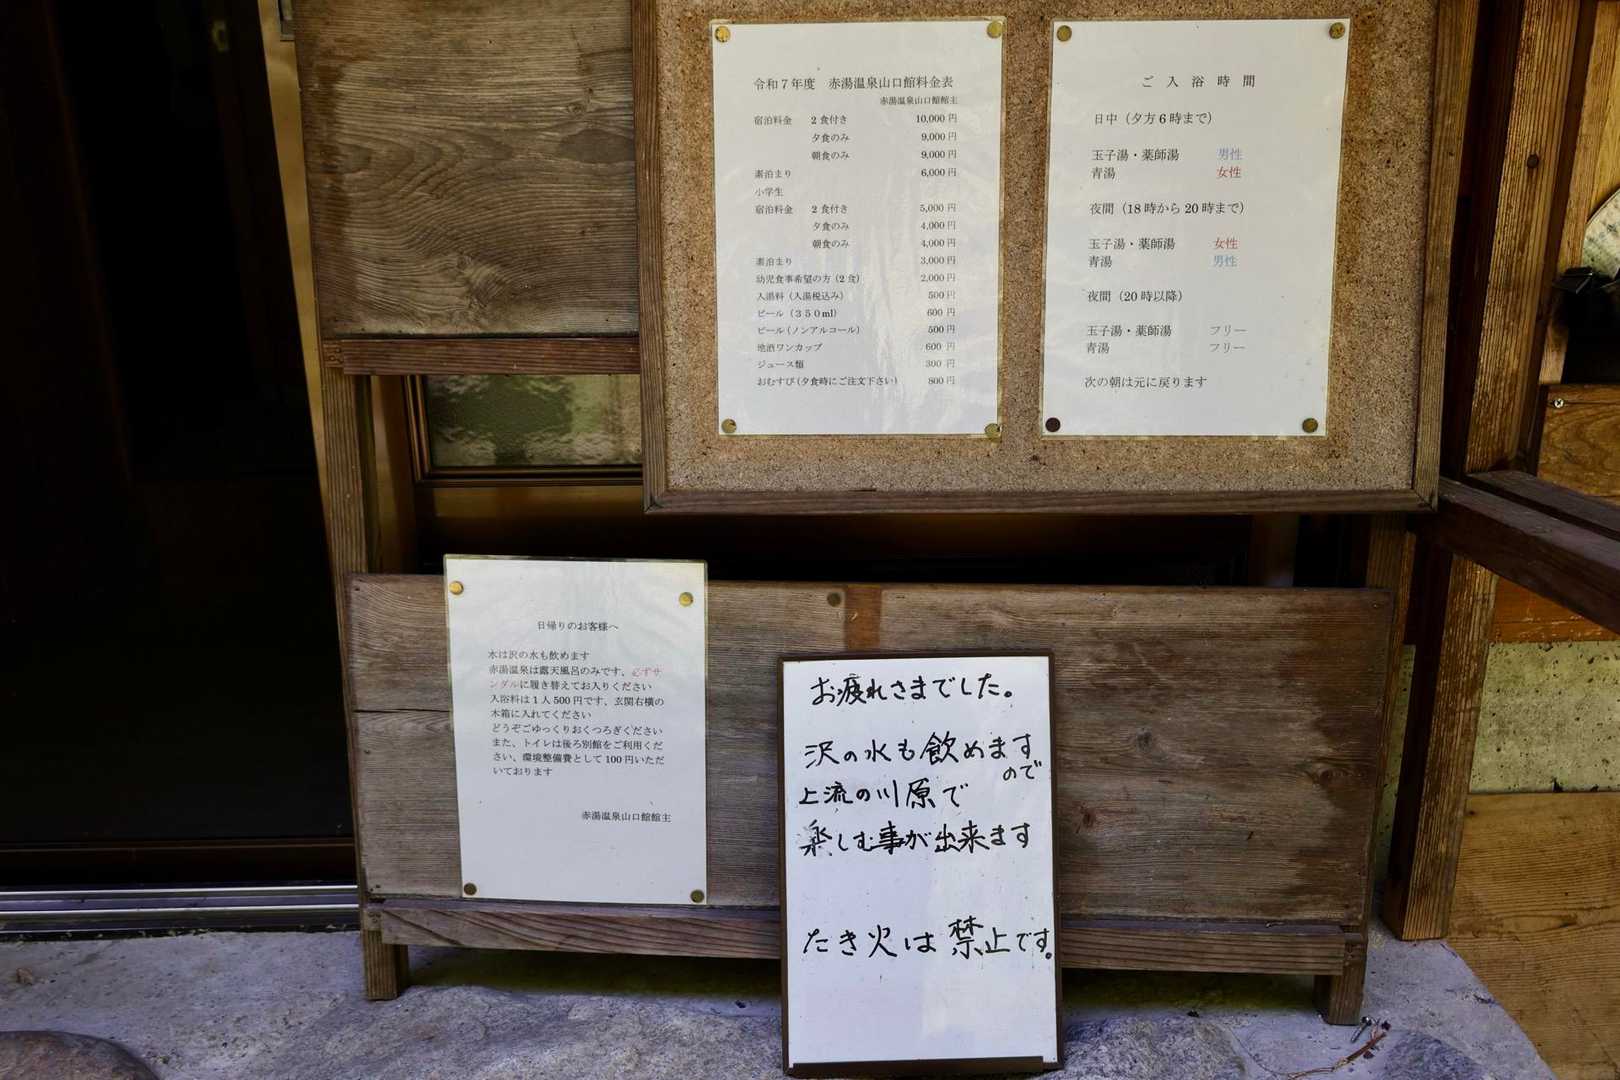 令和７年度　赤湯温泉山口館料金表
赤湯温泉山口館館主
宿泊料金　2食付き　10,000円
夕食のみ　9,000円
朝食のみ　9,000円
素泊まり　6,000円
小学生
宿泊料金　2食付き　5,000円
夕食のみ　4,000円
朝食のみ　4,000円
素泊まり　3,000円
幼児食事希望の方（2食）　2,000円
入湯料（入湯税込み）　500円
ビール（３５０ml）　600円
ビール（ノンアルコール）　500円
地酒ワンカップ　600円
ジュース類　300円
おむすび（夕食時にご注文下さい）　800円
ご入浴時間
日中（夕方6時まで）
玉子湯・薬師湯　男性
青湯　女性
夜間（18時から20時まで）
玉子湯・薬師湯　女性
青湯　男性
夜間（20時以降）
玉子湯・薬師湯　フリー
青湯　フリー
次の朝は元に戻ります
日帰りのお客様へ
水は沢の水も飲めます
赤湯温泉は露天風呂のみです、必ずサ
ンダルに履き替えてお入りください
入浴料は1人500円です、玄関右横の
木箱に入れてください
どうぞごゆっくりおくつろぎください
また、トイレは後ろ別館をご利用くだ
さい、環境整備費として100円いただ
いております
赤湯温泉山口館館主
お疲れさまでした。
沢の水も飲めます
ので
上流の川原で
楽しむ事が出来ます
たき火は禁止です。